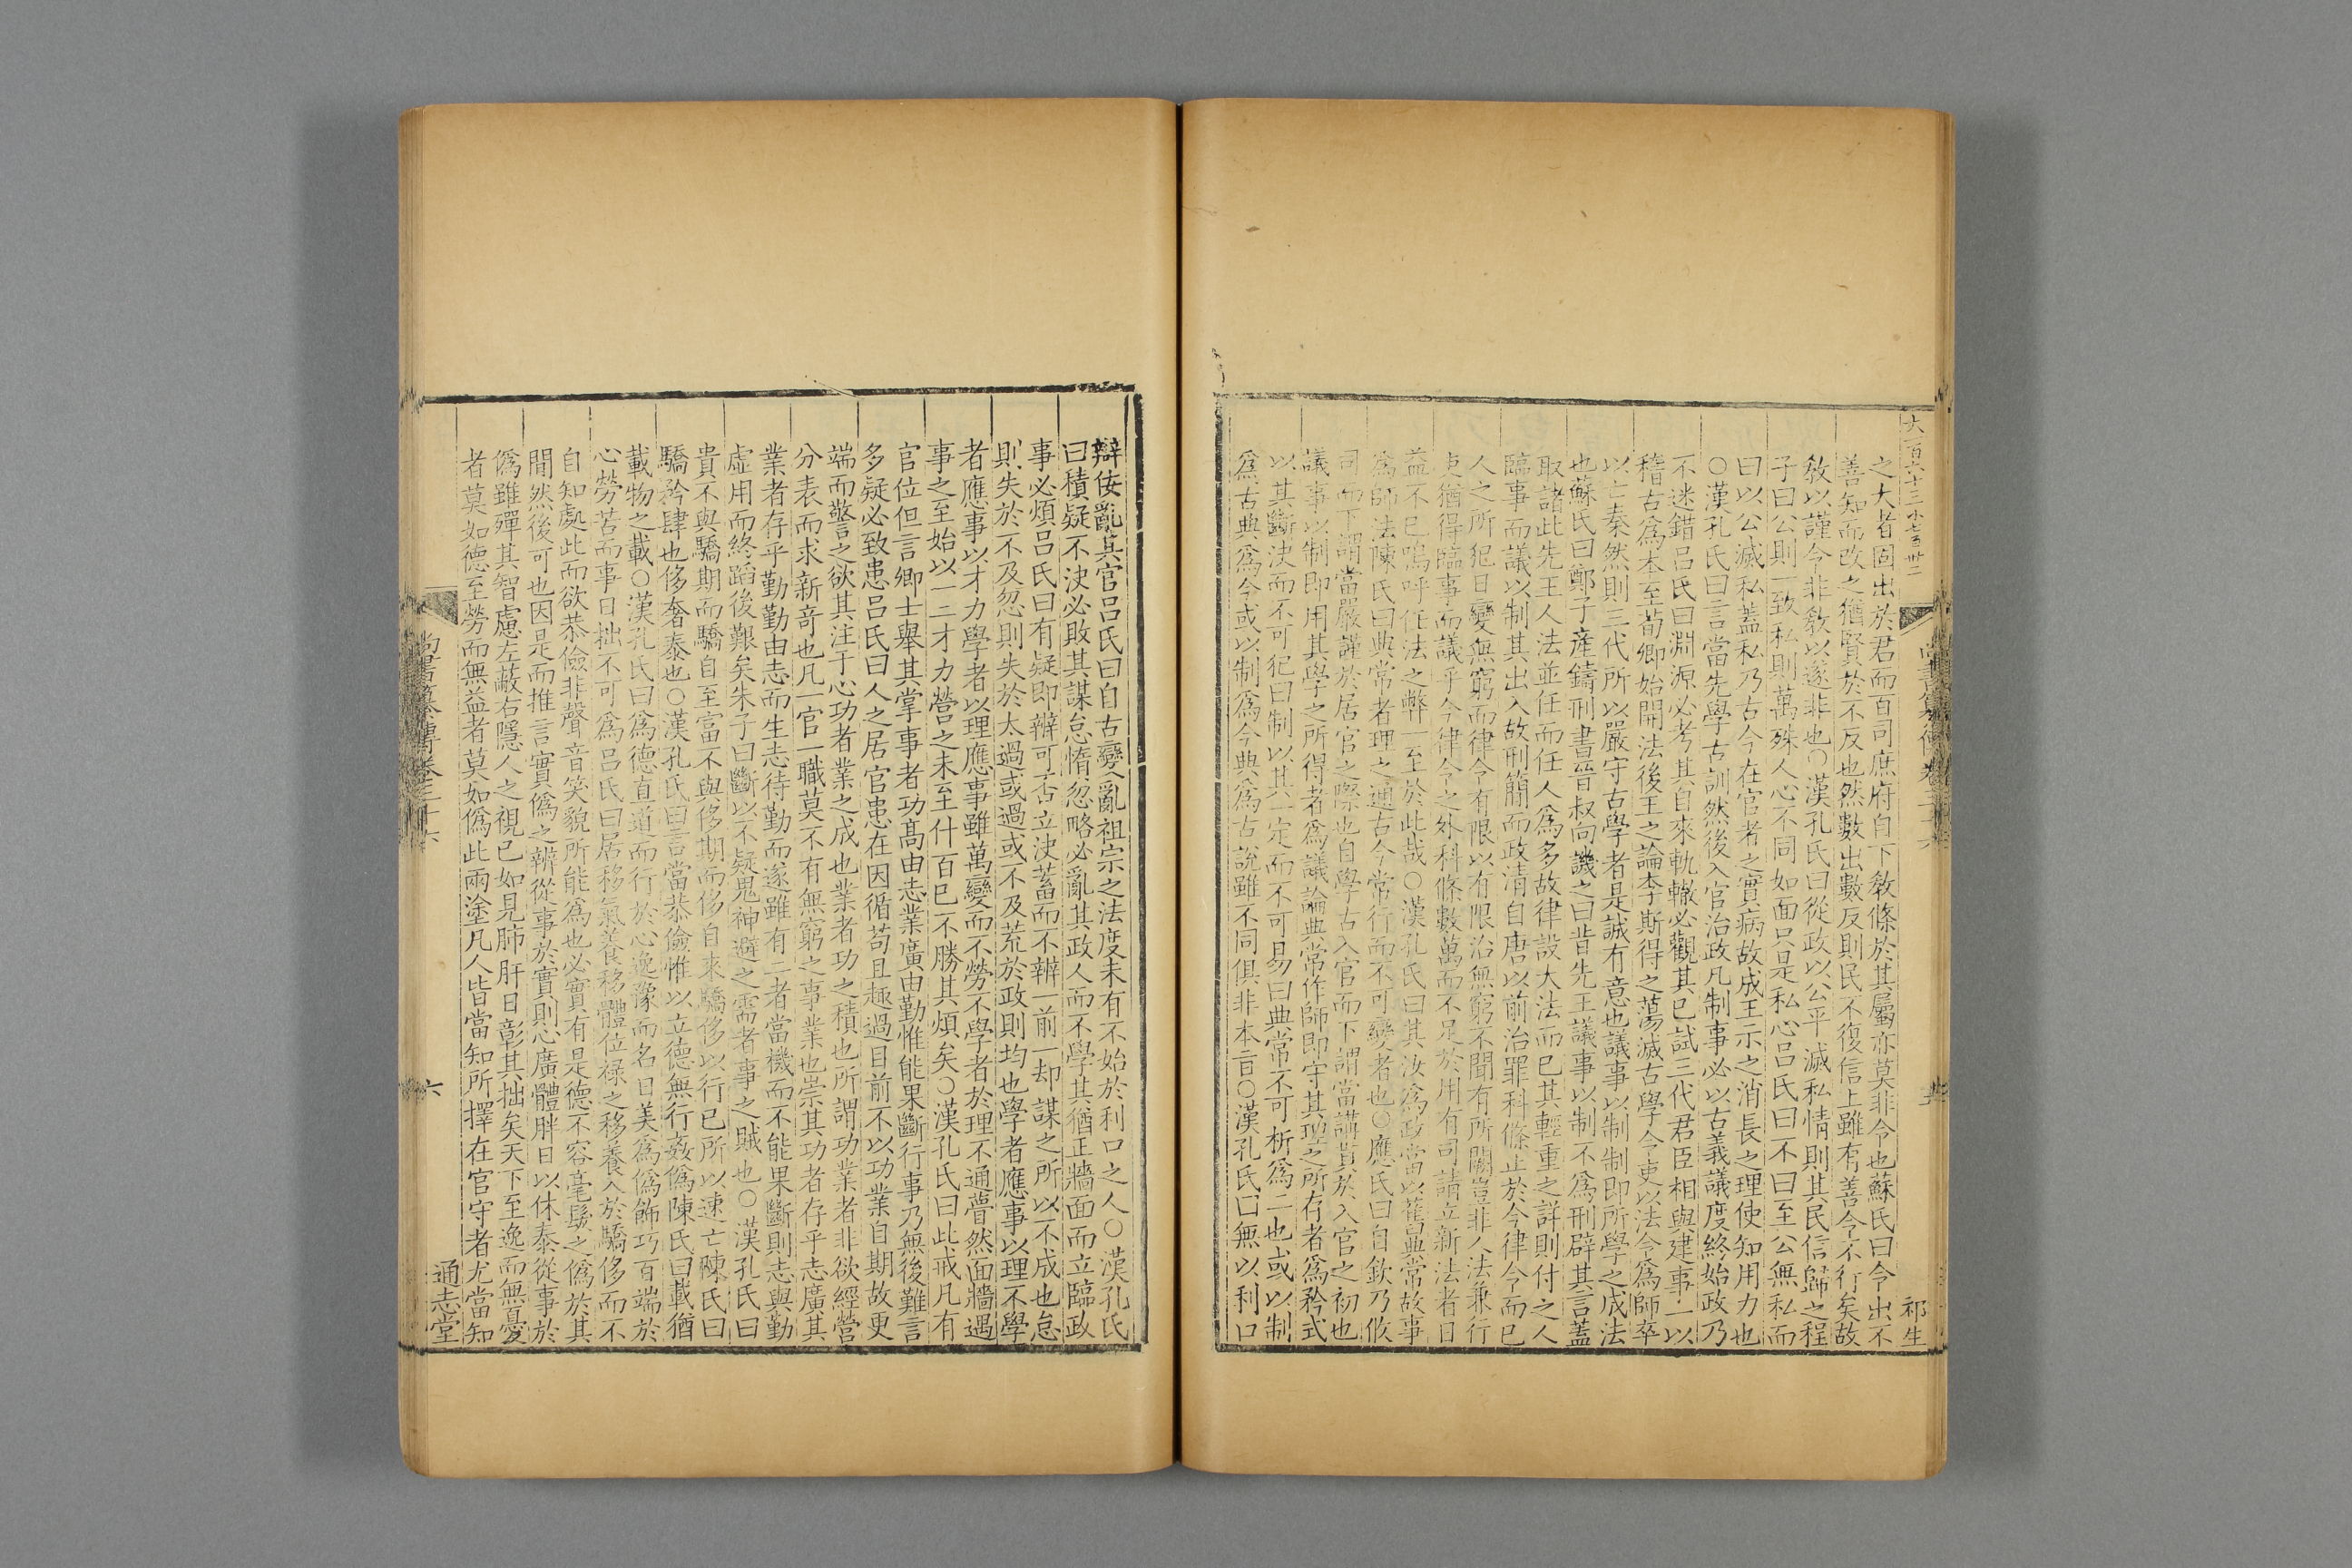 大一百六十三小七百卌二
祁生
之大者固出於君而百司庶府自下敎條於其屬亦莫非令也蘇氏曰令出不
善知而改之猶賢於不反也然數出數反則民不復信上雖有善令不行矣故
敎以謹令非敎以遂非也○漢孔氏曰從政以公平滅私情則其民信歸之程
子曰公則一致私則萬殊人心不同如面只是私心呂氏曰不曰至公無私而
曰以公滅私蓋私乃古今在官者之實病故成王示之消長之理使知用力也
○漢孔氏曰言當先學古訓然後入官治政凡制事必以古義議度終始政乃
不迷錯呂氏曰淵源必考其自來軌轍必觀其已試三代君臣相與建事一以
稽古爲本至荀卿始開法後王之論李斯得之蕩滅古學令吏以法令爲師卒
以亡秦然則三代所以嚴守古學者是誠有意也議事以制制卽所學之成法
也蘇氏曰鄭子產鑄刑書晉叔向譏之曰昔先王議事以制不爲刑辟其言蓋
取諸此先王人法並任而任人爲多故律設大法而已其輕重之詳則付之人
臨事而議以制其出入故刑簡而政清自唐以前治罪科條止於今律令而已
人之所犯日變無窮而律令有限以有限治無窮不聞有所闕豈非人法兼行
吏猶得臨事而議乎今律令之外科條數萬而不足於用有司請立新法者日
益不已嗚呼任法之弊一至於此哉○漢孔氏曰其汝爲政當以舊典常故事
爲師法陳氏曰典常者理之通古今常行而不可變者也○應氏曰自欽乃攸
司而下謂當嚴謹於居官之際也自學古入官而下謂當講貫於入官之初也
議事以制卽用其學之所得者爲議論典常作師卽守其理之所存者爲矜式
以其斷決而不可犯曰制以其一定而不可易曰典常不可析爲二也或以制
爲古典爲今或以制爲今典爲古說雖不同俱非本旨○漢孔氏曰無以利口
辯佞亂其官呂氏曰自古變亂祖宗之法度未有不始於利口之人○漢孔氏
曰積疑不決必敗其謀怠惰忽略必亂其政人而不學其猶正牆面而立臨政
事必煩呂氏曰有疑卽辯可否立決蓄而不辯一前一却謀之所以不成也怠
則失於不及忽則失於太過或過或不及荒於政則均也學者應事以理不學
者應事以才力學者以理應事雖萬變而不勞不學者於理不通瞢然面牆遇
事之至始以一二才力營之未至什百已不勝其煩矣○漢孔氏曰此戒凡有
官位但言卿士舉其掌事者功高由志業廣由勤惟能果斷行事乃無後難言
多疑必致患呂氏曰人之居官患在因循苟且趣過目前不以功業自期故更
端而警言之欲其注于心功者業之成也業者功之積也所謂功業者非欲經營
分表而求新奇也凡一官一職莫不有無窮之事業也崇其功者存乎志廣其
業者存乎勤勤由志而生志待勤而遂雖有二者當機而不能果斷則志與勤
虛用而終蹈後艱矣朱子曰斷以不疑鬼神避之需者事之賊也○漢孔氏曰
貴不與驕期而驕自至富不與侈期而侈自來驕侈以行已所以速亡陳氏曰
驕矜肆也侈奢泰也○漢孔氏曰言當恭儉惟以立德無行姦僞陳氏曰載猶
載物之載○漢孔氏曰爲德直道而行於心逸豫而名日美爲僞飾巧百端於
心勞苦而事日拙不可爲呂氏曰居移氣養移體位祿之移養入於驕侈而不
自知處此而欲恭儉非聲音笑貌所能爲也必實有是德不容毫髮之僞於其
閒然後可也因是而推言實僞之辨從事於實則心廣體胖日以休泰從事於
僞雖殫其智慮左蔽右隱人之視已如見肺肝日彰其拙矣天下至逸而無憂
者莫如德至勞而無益者莫如僞此兩塗凡人皆當知所擇在官守者尤當知
尚書纂傳卷三十六
六
通志堂